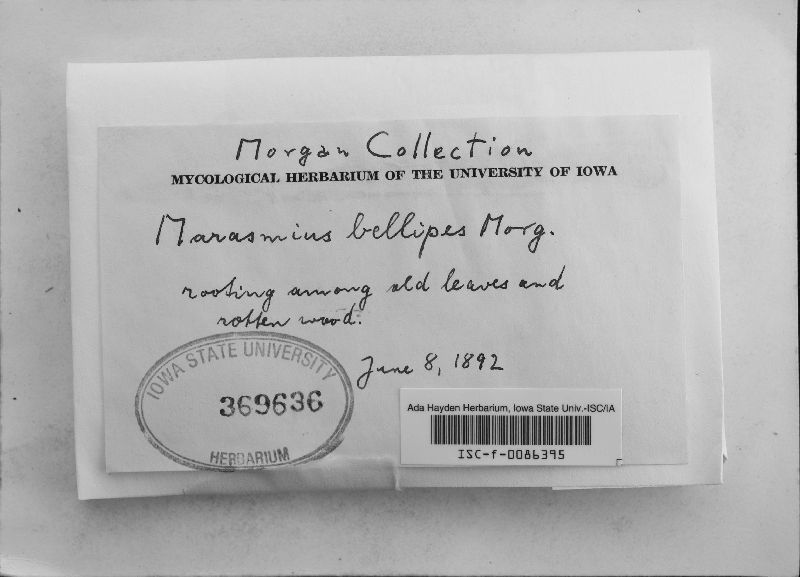 Morgan Collection
MYCOLOGICAL HERBARIUM OF THE UNIVERSITY OF IOWA
Marasmius bellipes Morg.
rooting among old leaves and
rotten wood.
June 8, 1892
IOWA STATE UNIVERSITY
369636
HERBARIUM
Ada Hayden Herbarium, Iowa State Univ.-ISC/IA
ISC-f-0086395